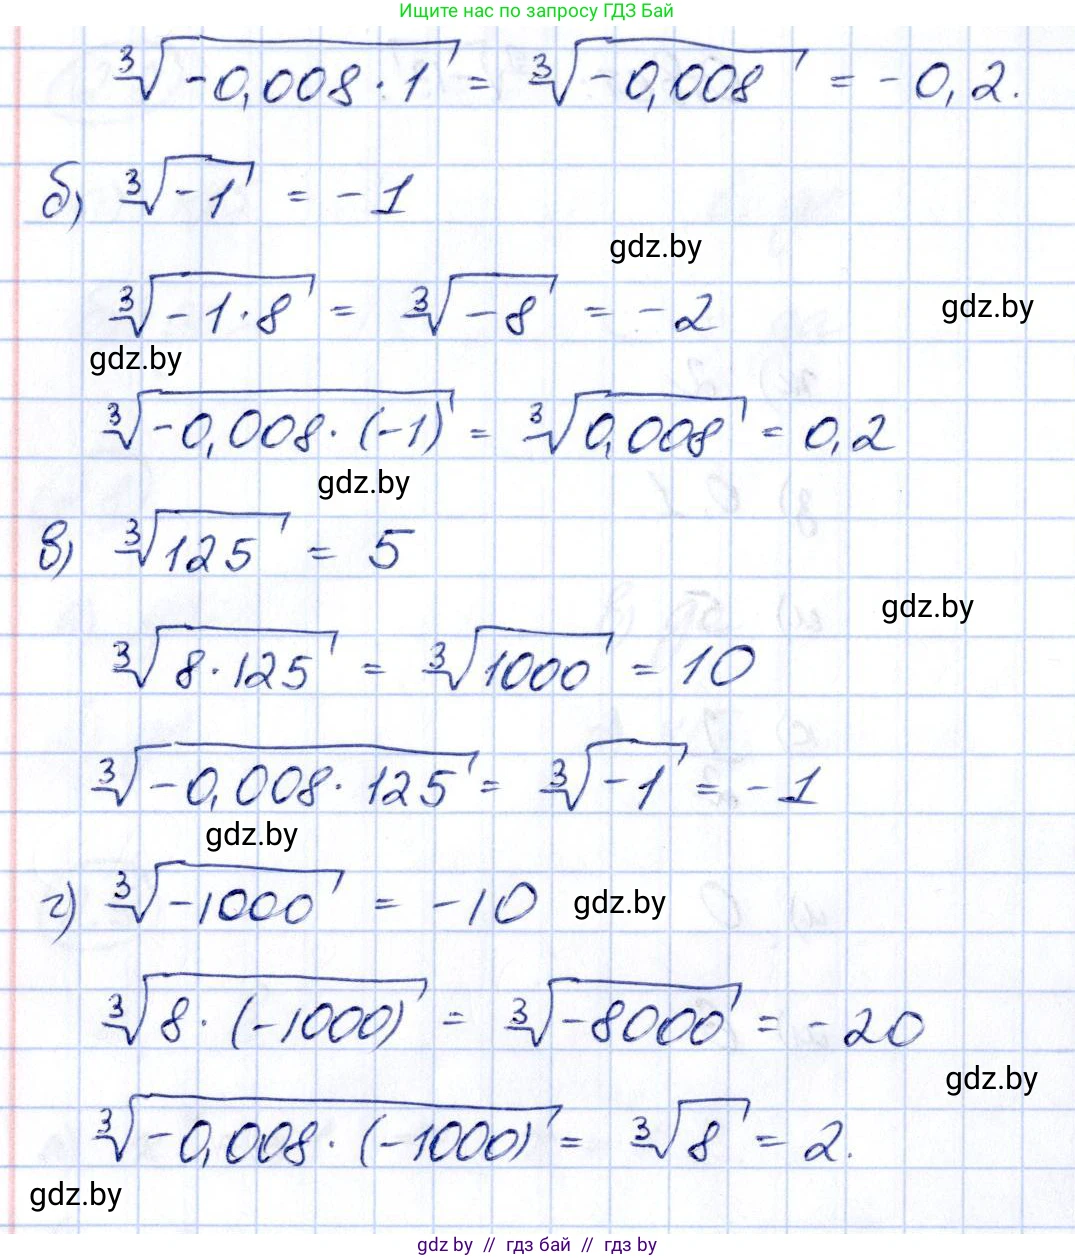 Ищите нас по запросу ГДЗ Бай
∛(-0,008·1) = ∛(-0,008) = -0,2.
б) ∛(-1) = -1
gdz.by
∛(-1·8) = ∛(-8) = -2
gdz.by
gdz.by
∛(-0,008·(-1)) = ∛(0,008) = 0,2
gdz.by
в) ∛(125) = 5
gdz.by
∛(8·125) = ∛(1000) = 10
∛(-0,008·125) = ∛(-1) = -1
gdz.by
г) ∛(-1000) = -10
gdz.by
∛(8·(-1000)) = ∛(-8000) = -20
gdz.by
∛(-0,008·(-1000)) = ∛(8) = 2.
gdz.by
gdz.by // гдз бай // gdz.by